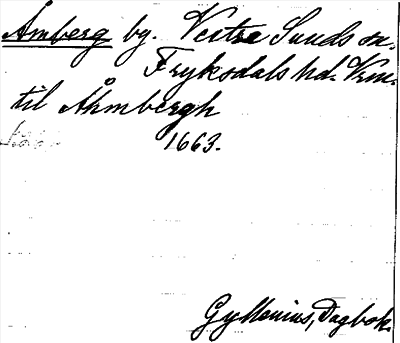 Åmberg by. Vestra Sunds sn.
Fryksdals hd. Vrm.
til Åhmbergh
1663.
Gyllenius, Dagbok.